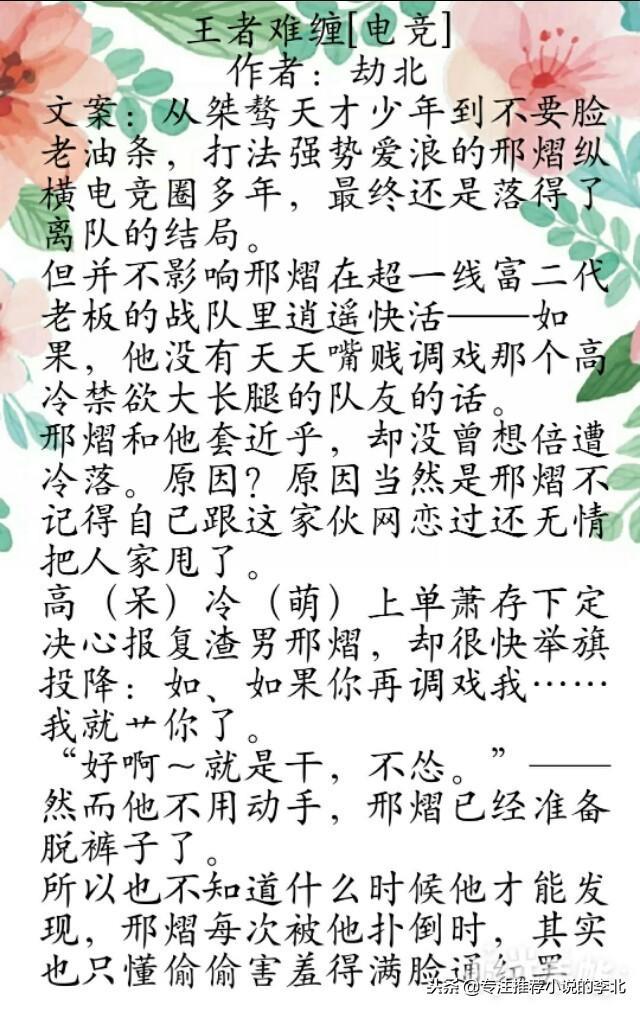 王者难缠[电竞]
作者：劫北
文案：从桀骜天才少年到不要脸
老油条，打法强势爱浪的邢熠纵
横电竞圈多年，最终还是落得了
离队的结局。
但并不影响邢熠在超一线富二代
老板的战队里逍遥快活——如
果，他没有天天嘴贱调戏那个高
冷禁欲大长腿的队友的话。
邢熠和他套近乎，却没曾想倍遭
冷落。原因？原因当然是邢熠不
记得自己跟这家伙网恋过还无情
把人家甩了。
高（呆）冷（萌）上单萧存下定
决心报复渣男邢熠，却很快举旗
投降：如、如果你再调戏我……
我就艹你了。
“好啊～就是干，不怂。”——
然而他不用动手，邢熠已经准备
脱裤子了。
所以也不知道什么时候他才能发
现，邢熠每次被他扑倒时，其实
也只懂偷偷害羞得满脸通红罢
头条@专注推荐小说的李北